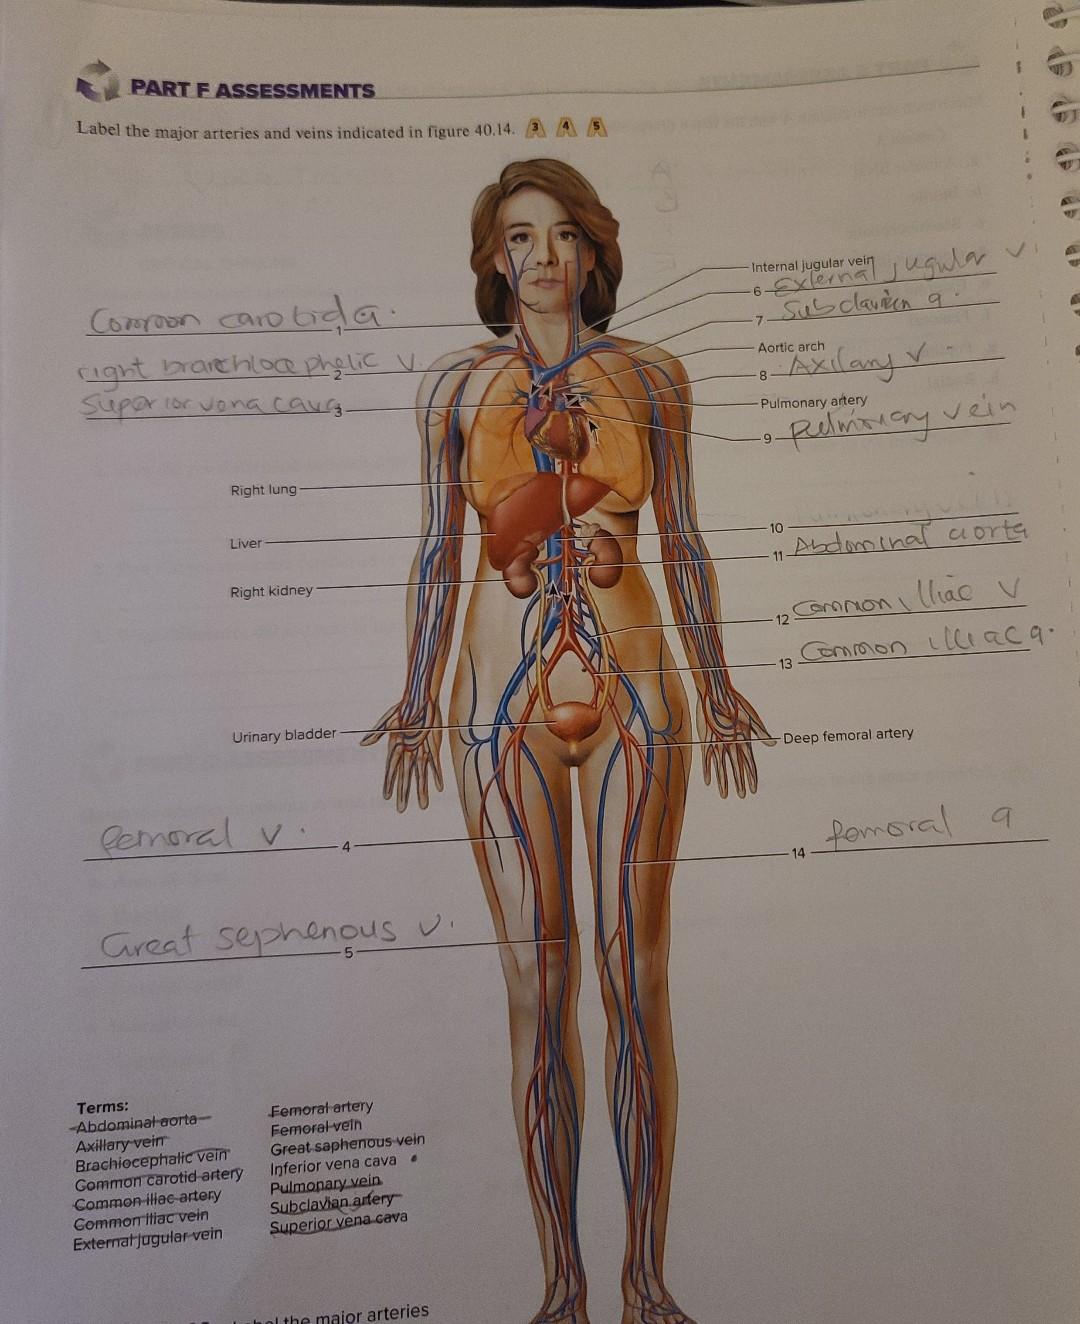 PART F ASSESSMENTS
Label the major arteries and veins indicated in figure 40.14. 3 4 5
Internal jugular vein
6 External jugular v
Common carotid a.
1
7 Subclavien a.
Aortic arch
right brarchlocephelic v.
2
8 Axilary v
Superior vona cava
3
Pulmonary artery
9 pulmonary vein
Right lung
10
Liver
11 Abdominal aorta
Right kidney
12 Common illiac v
13 Common illiac a.
Urinary bladder
Deep femoral artery
femoral v.
4
14 femoral a
Great sephenous v.
5
Terms:
Abdominal aorta
Axillary vein
Brachiocephalic vein
Common carotid artery
Common iliac artery
Common iliac vein
External jugular vein
Femoral artery
Femoral vein
Great saphenous vein
Inferior vena cava
Pulmonary vein
Subclavian artery
Superior vena cava
the major arteries